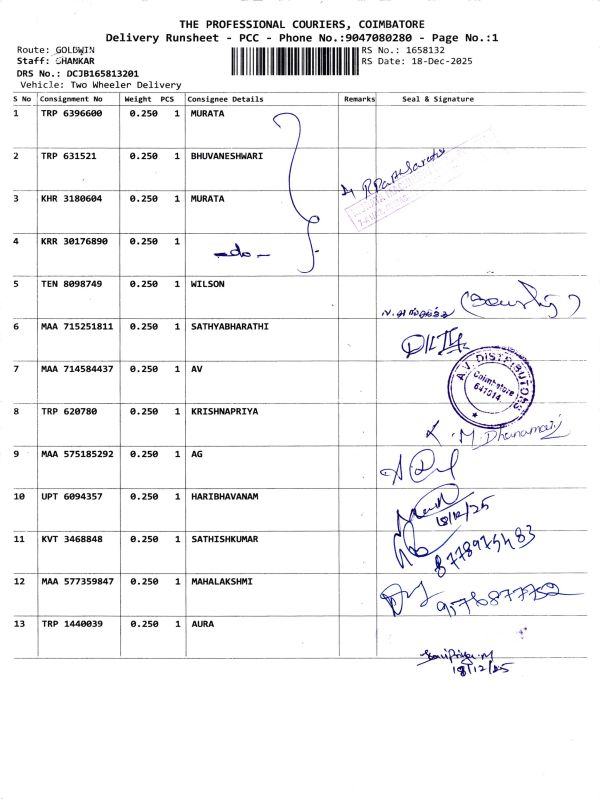 THE PROFESSIONAL COURIERS, COIMBATORE
Delivery Runsheet - PCC - Phone No.:9047080280 - Page No.:1
Route: GOLDWIN
RS No.: 1658132
Staff: SHANKAR
RS Date: 18-Dec-2025
DRS No.: DCJB165813201
Vehicle: Two Wheeler Delivery
S No Consignment No Weight PCS Consignee Details Remarks Seal & Signature
1 TRP 6396600 0.250 1 MURATA
2 TRP 631521 0.250 1 BHUVANESHWARI
3 KHR 3180604 0.250 1 MURATA
4 KRR 30176890 0.250 1 -do-
5 TEN 8098749 0.250 1 WILSON
6 MAA 715251811 0.250 1 SATHYABHARATHI
7 MAA 714584437 0.250 1 AV
A.V. DISTRIBUTORS
Coimbatore
641014
8 TRP 620780 0.250 1 KRISHNAPRIYA
M. Dhanamani
9 MAA 575185292 0.250 1 AG
10 UPT 6094357 0.250 1 HARIBHAVANAM
18/12/25
11 KVT 3468848 0.250 1 SATHISHKUMAR
8778975483
12 MAA 577359847 0.250 1 MAHALAKSHMI
9576877752
13 TRP 1440039 0.250 1 AURA
18/12/25